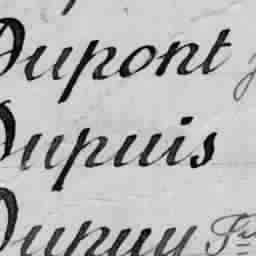 Dupont
Dupuis
Dupuy